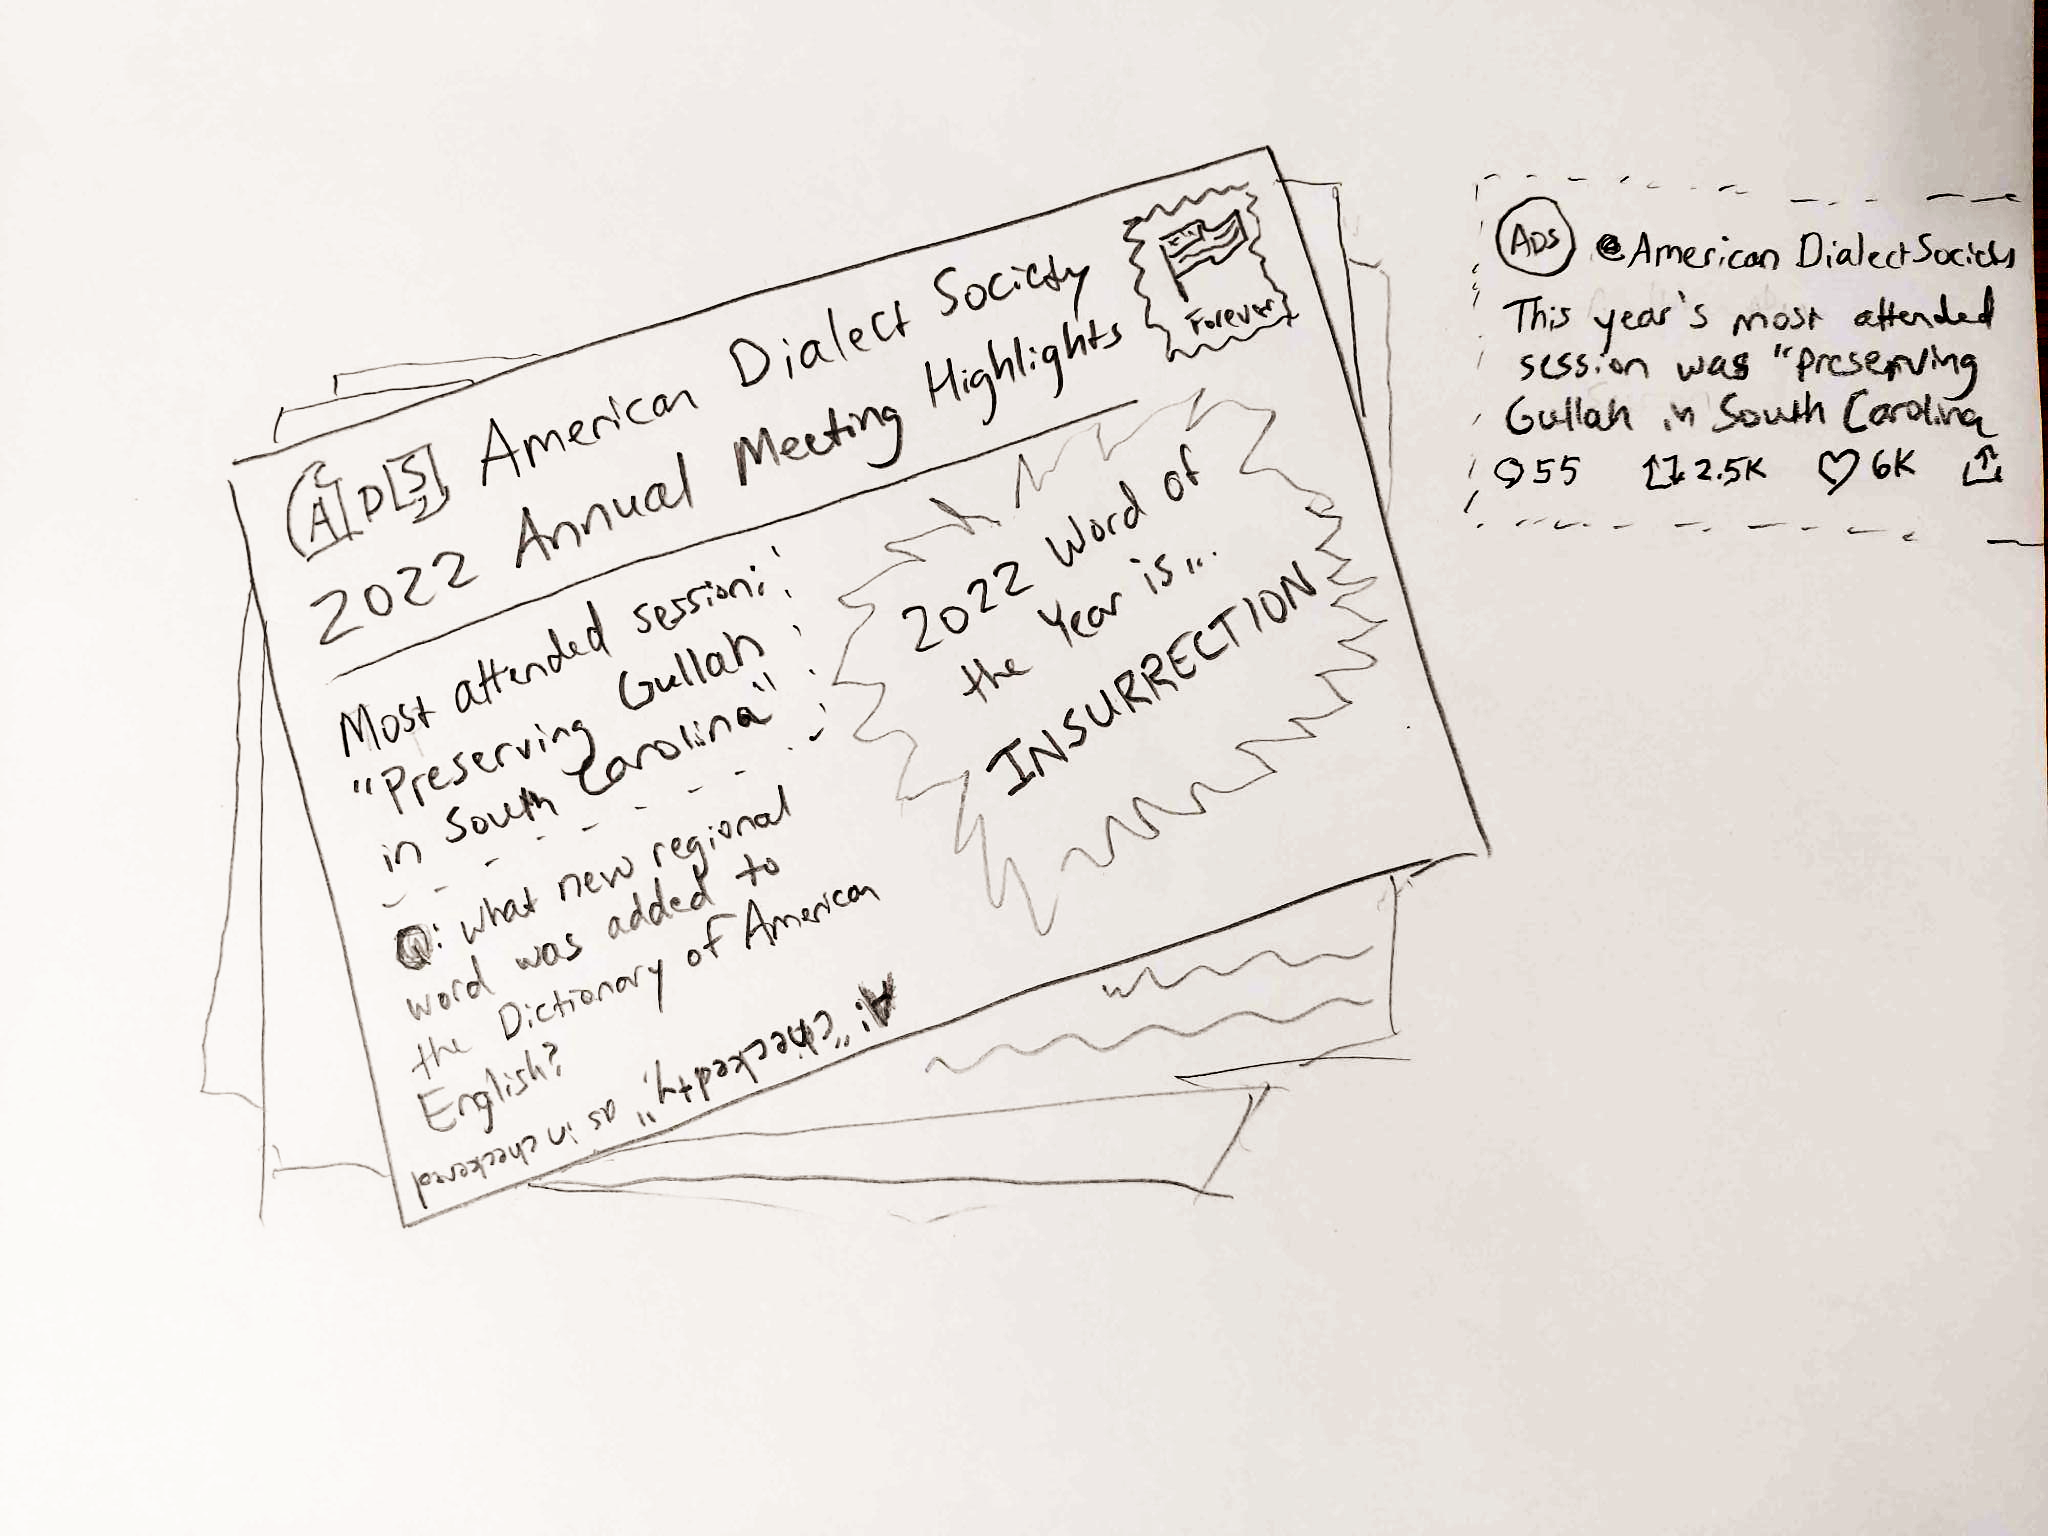 ADS American Dialect Society
2022 Annual Meeting Highlights
Forever
Most attended session:
"Preserving Gullah
in South Carolina"
Q: what new regional
word was added to
the Dictionary of American
English?
A: "checkedty," as in checkered
2022 Word of
the Year is...
INSURRECTION
ADS @American Dialect Society
This year's most attended
session was "Preserving
Gullah in South Carolina
55 2.5K 6K